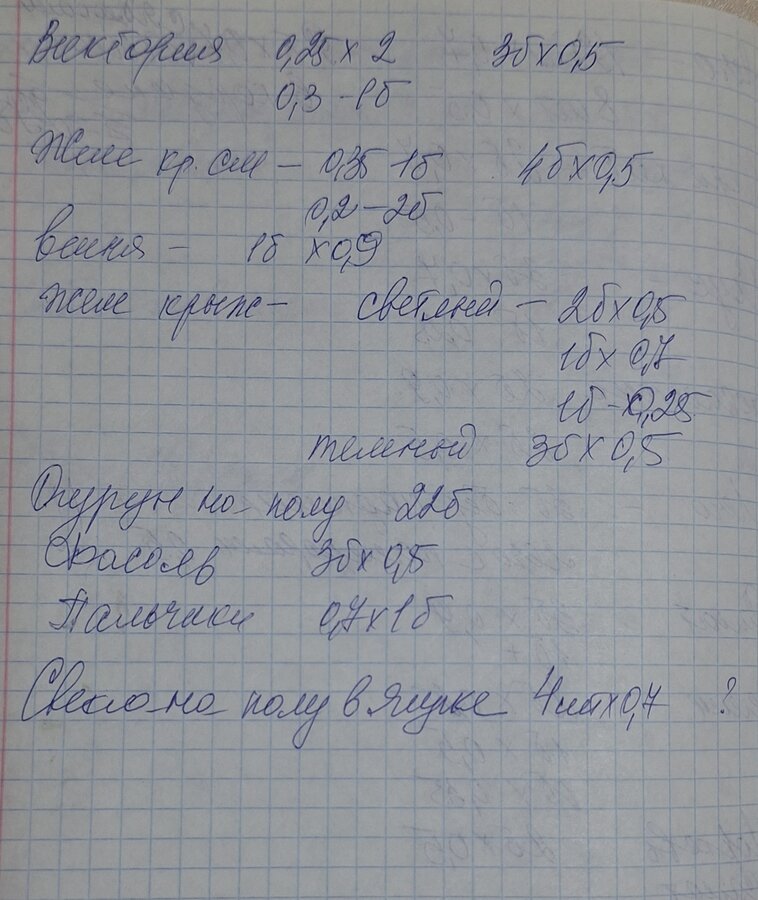 Виктория 0,25 х 2 3б х 0,5
0,3 – 1б
Желе кр. см – 0,35 1б 4б х 0,5
0,2 – 2б
вишня – 1б х 0,9
Желе крыж – светлый – 2б х 0,5
1б х 0,7
1б – х 0,25
темный 3б х 0,5
Огурцы на полу 22б
Фасоль 3б х 0,5
Пальчики 0,7 х 1б
Свекла на полу в ящике 4шт х 0,7 ?